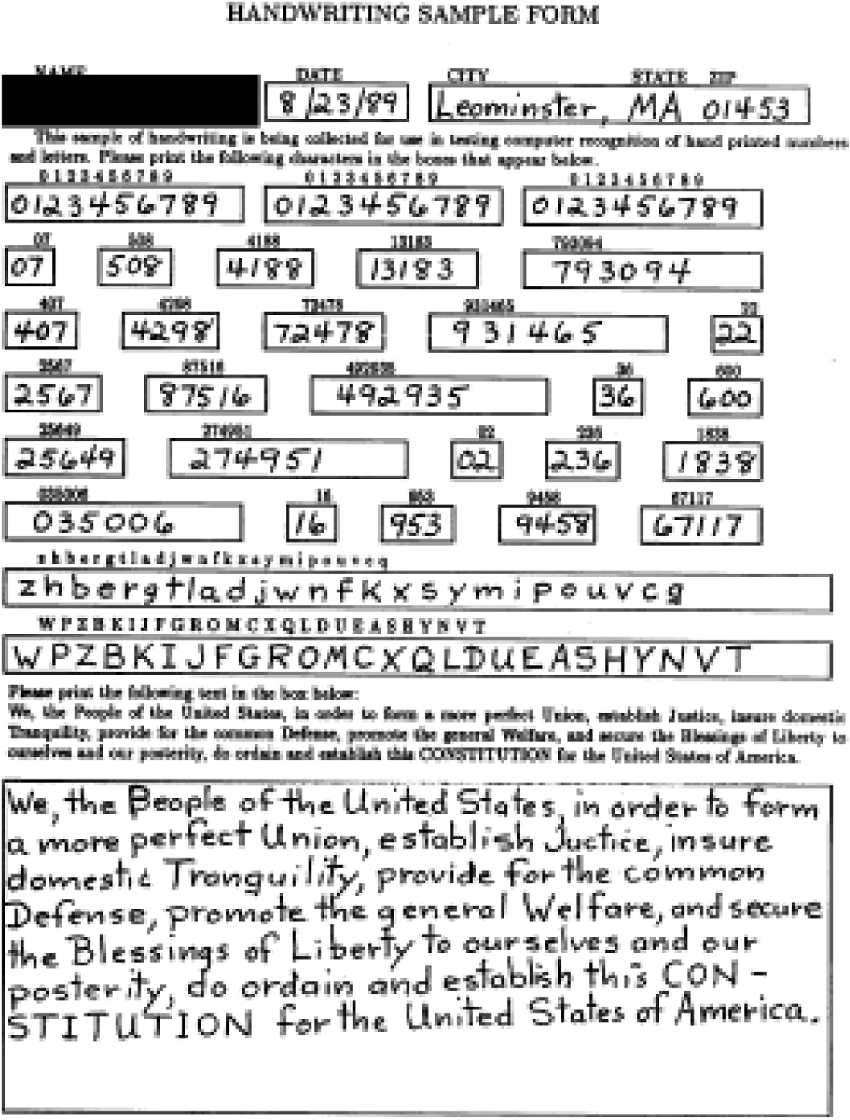 HANDWRITING SAMPLE FORM
NAME DATE CITY STATE ZIP
8/23/89 Leominster, MA 01453
This sample of handwriting is being collected for use in testing computer recognition of hand printed numbers
and letters. Please print the following characters in the boxes that appear below.
0123456789 0123456789 0123456789
0123456789 0123456789 0123456789
07 508 4188 13183 793094
07 508 4188 13183 793094
407 4298 72478 931465 22
407 4298 72478 931465 22
2567 87516 492935 36 600
2567 87516 492935 36 600
25649 274951 02 236 1838
25649 274951 02 236 1838
035006 16 953 9458 67117
035006 16 953 9458 67117
zhbergtladjwnfkxsymipouvcq
zhbergtladjwnfkxsymipouvcq
WPZBKIJFGROMCXQLDUEASHYNVT
WPZBKIJFGROMCXQLDUEASHYNVT
Please print the following text in the box below:
We, the People of the United States, in order to form a more perfect Union, establish Justice, insure domestic
Tranquility, provide for the common Defense, promote the general Welfare, and secure the Blessings of Liberty to
ourselves and our posterity, do ordain and establish this CONSTITUTION for the United States of America.
We, the People of the United States, in order to form
a more perfect Union, establish Juctice, insure
domestic Tranquility, provide for the common
Defense, promote the general Welfare, and secure
the Blessings of Liberty to ourselves and our
posterity, do ordain and establish this CON-
STITUTION for the United States of America.